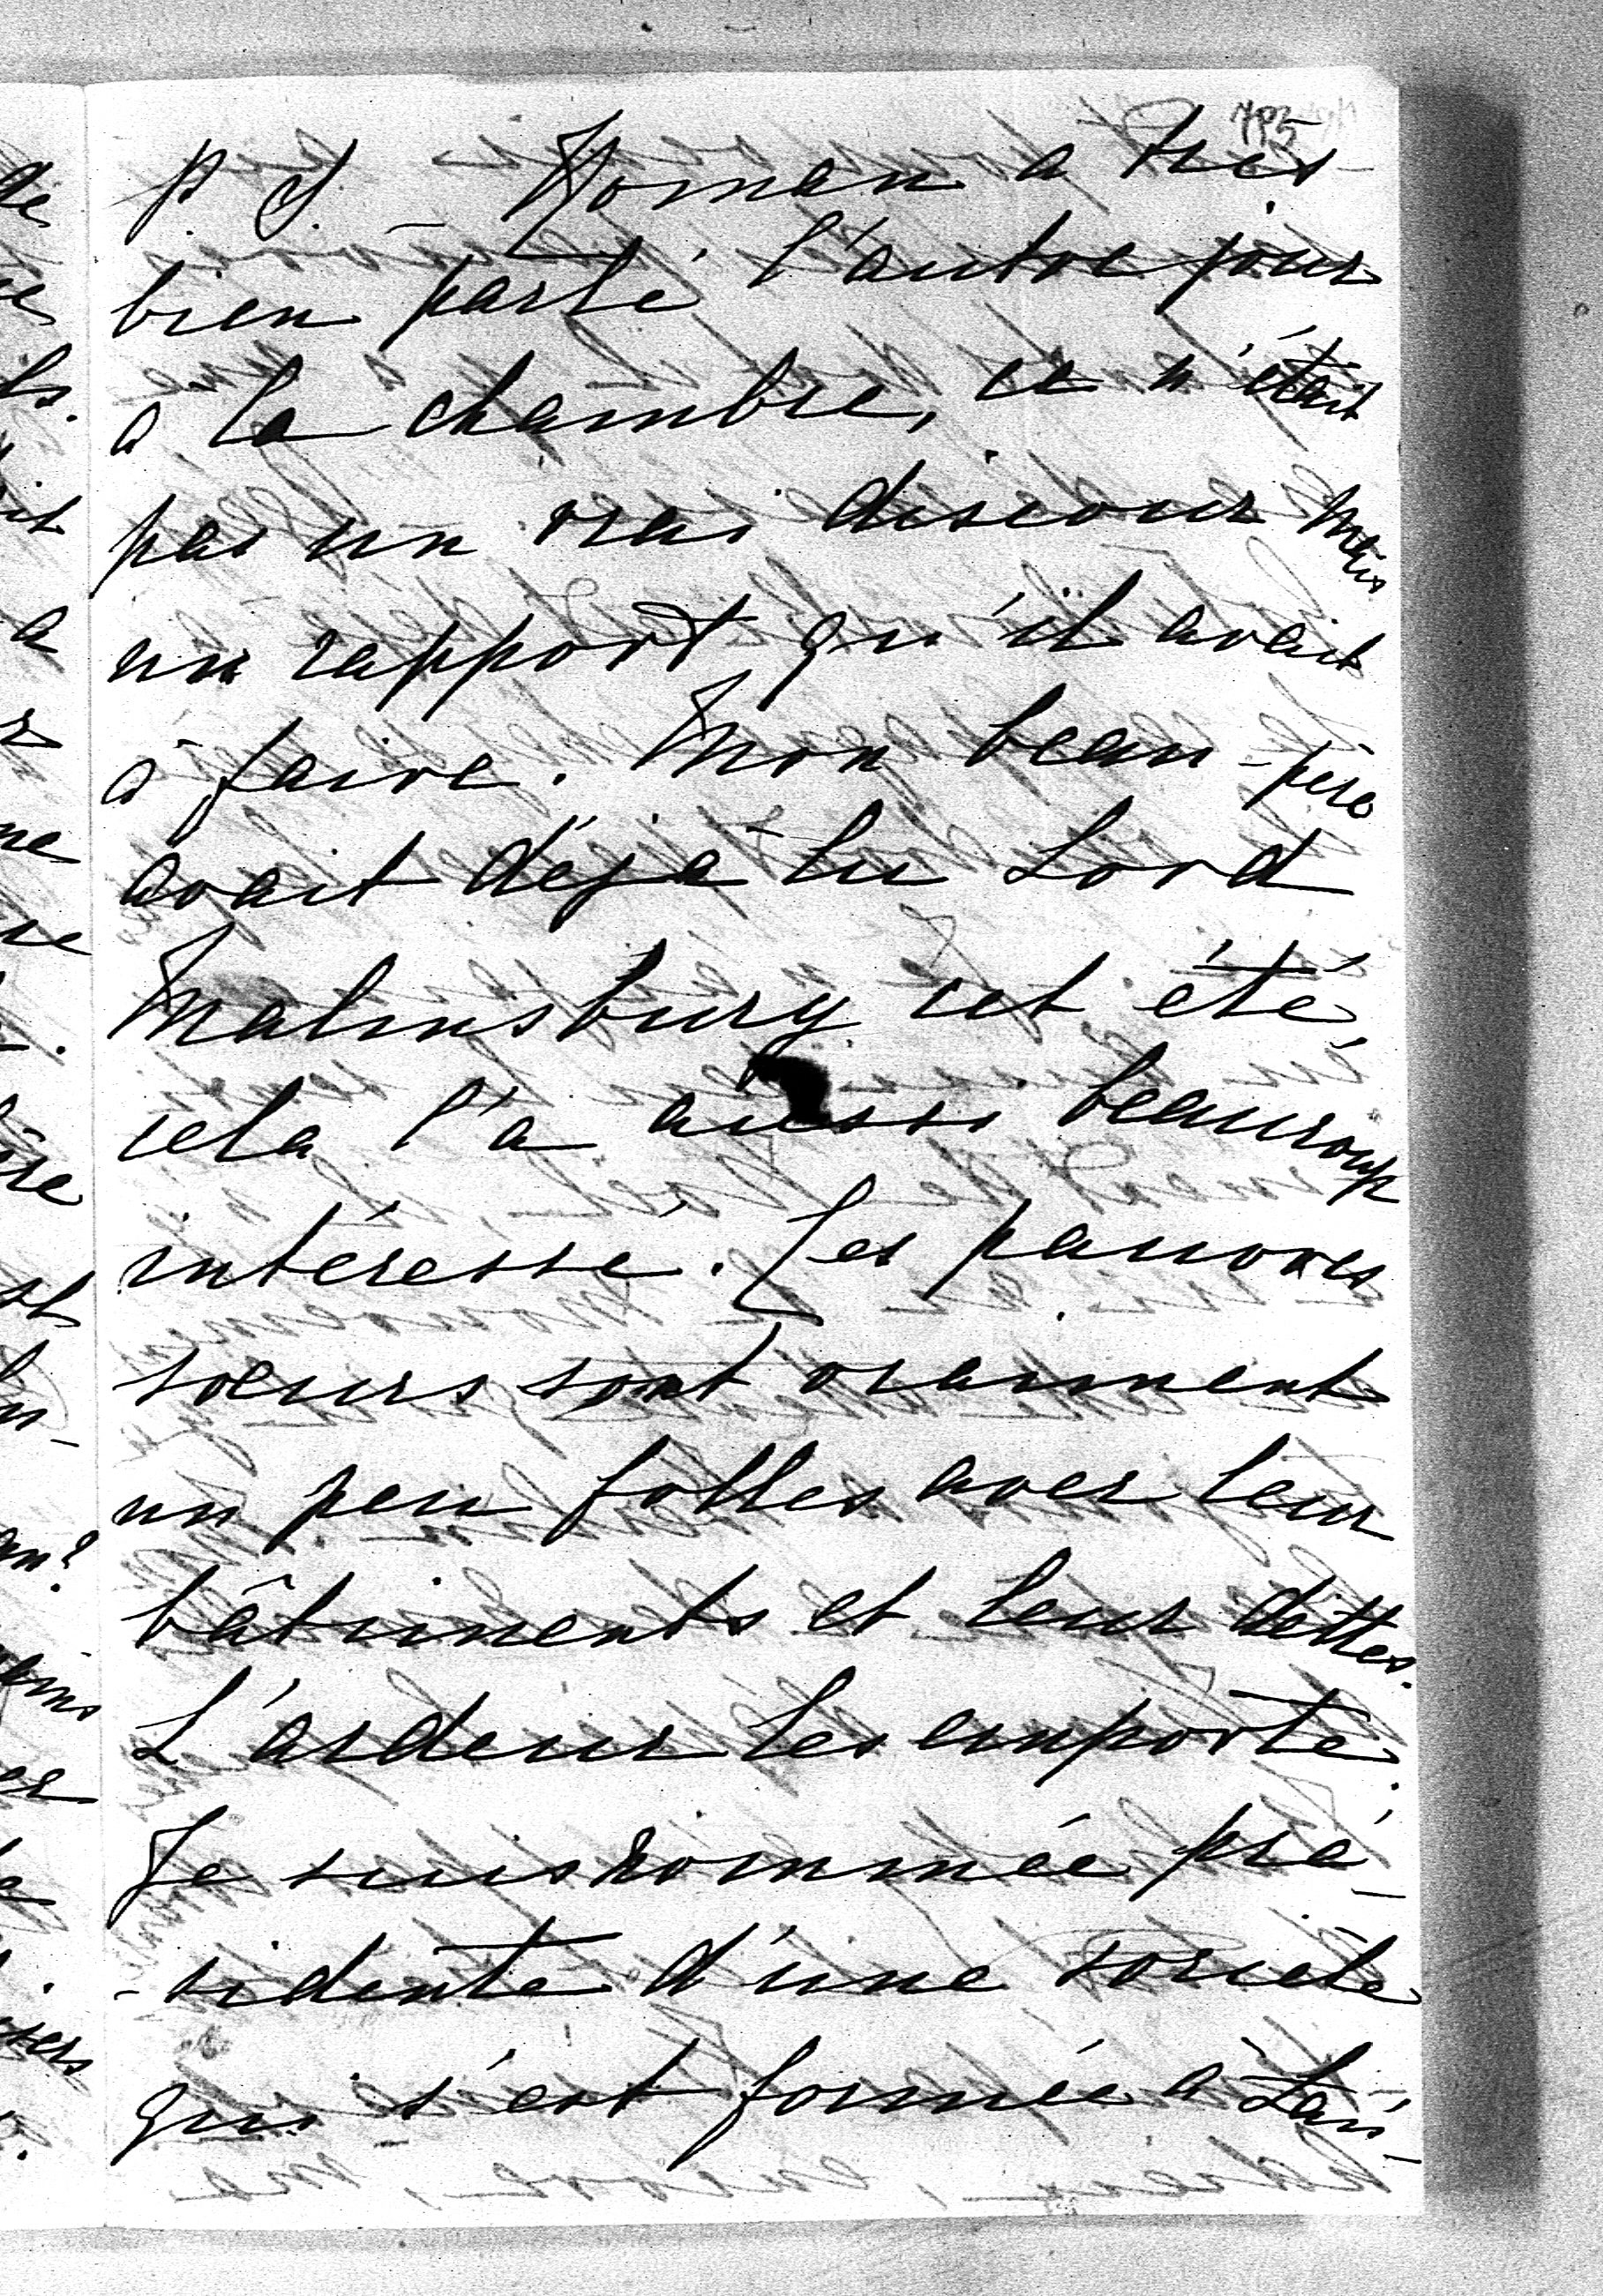 P. S. – Roman a très
bien parlé l'autre jour
à la chambre, ce n'était
pas un vrai discour mais
un rapport qu'il avait
à faire. Mon beau-père
avait déjà lu Lord
Malmsbury cet été,
cela l'a aussi beaucoup
intéressé. Les pauvres
soeurs sont vraiment
un peu folles avec leur
bâtiments et leur dettes.
L'ardeur les emporte.
Je suis nommée pré-
-sidente d'une société
qui s'est formée à Lań-